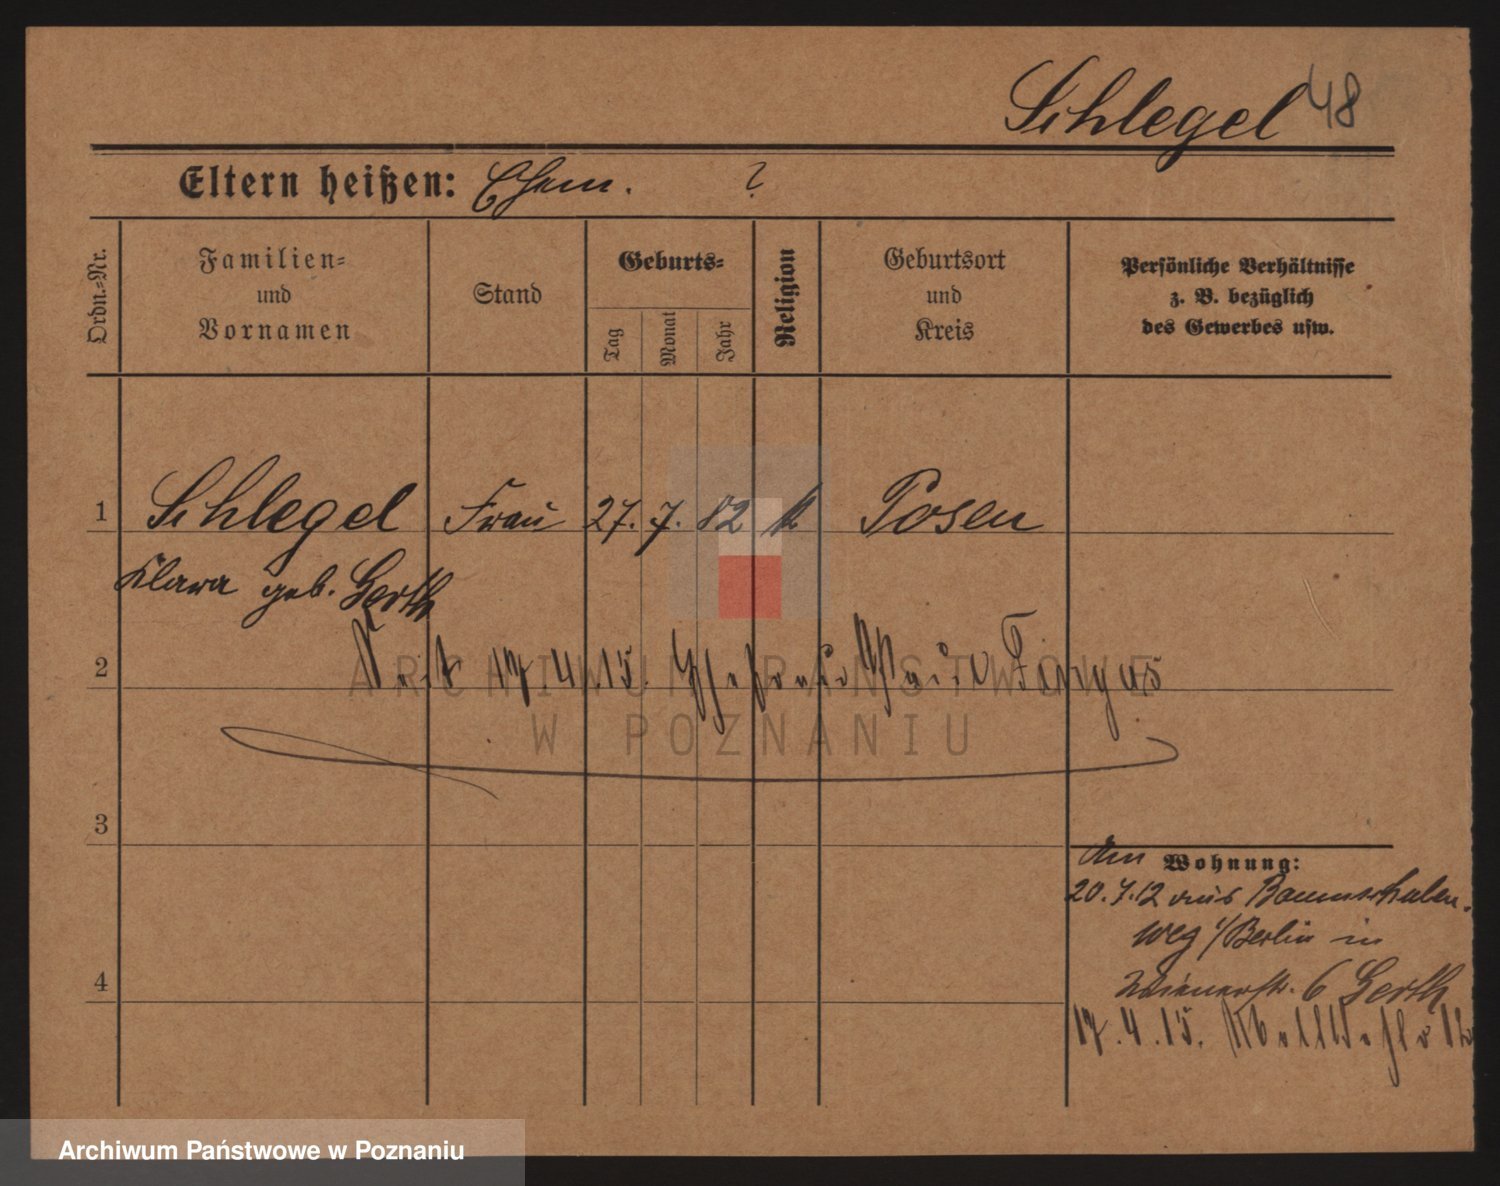 Schlegel 48
Eltern heißen: Ehem. ?
Ordn.-Nr.
Familien- und Vornamen
Stand
Geburts-
Tag
Monat
Jahr
Religion
Geburtsort und Kreis
Persönliche Verhältnisse
z. B. bezüglich
des Gewerbes usw.
1 Schlegel Frau 27. 7. 82 k Posen
Klara geb. Gerth
2 Seit 17 4.15. Ehefrau Paul Fingas
ARCHIWUM PAŃSTWOWE
W POZNANIU
3
Am Wohnung:
20.7.12 aus Baumschulen-
weg i/Berlin in
4
Wienerstr. 6 Gerth
17.4.15.
Archiwum Państwowe w Poznaniu